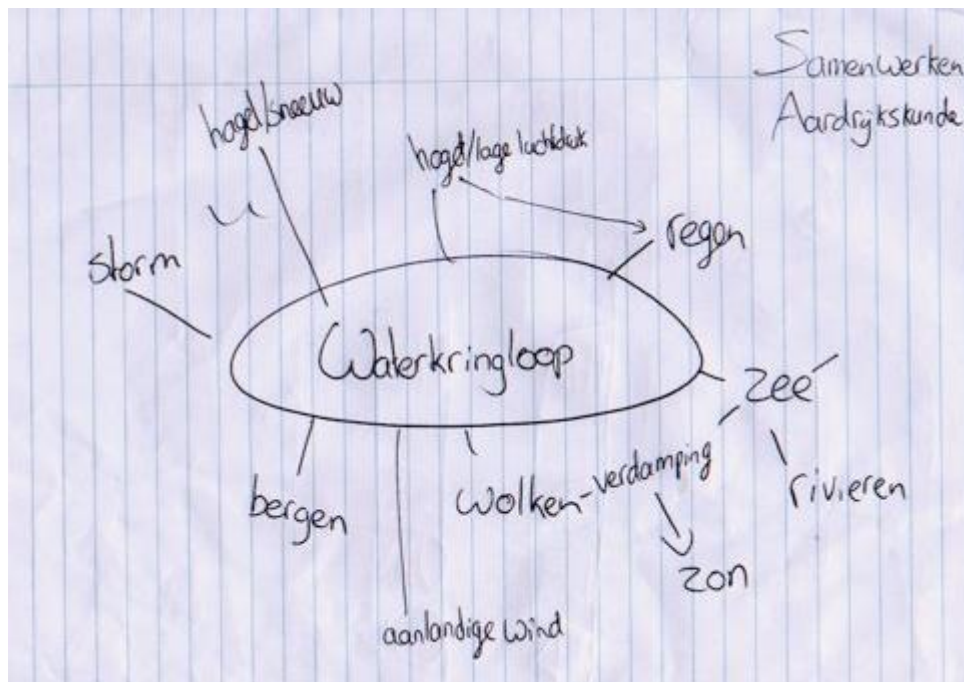 Samenwerken
Aardrijkskunde
hagel/sneeuw
lage luchtdruk
regen
storm
Waterkringloop
zee
bergen
wolken-verdamping
rivieren
zon
aanlandige wind